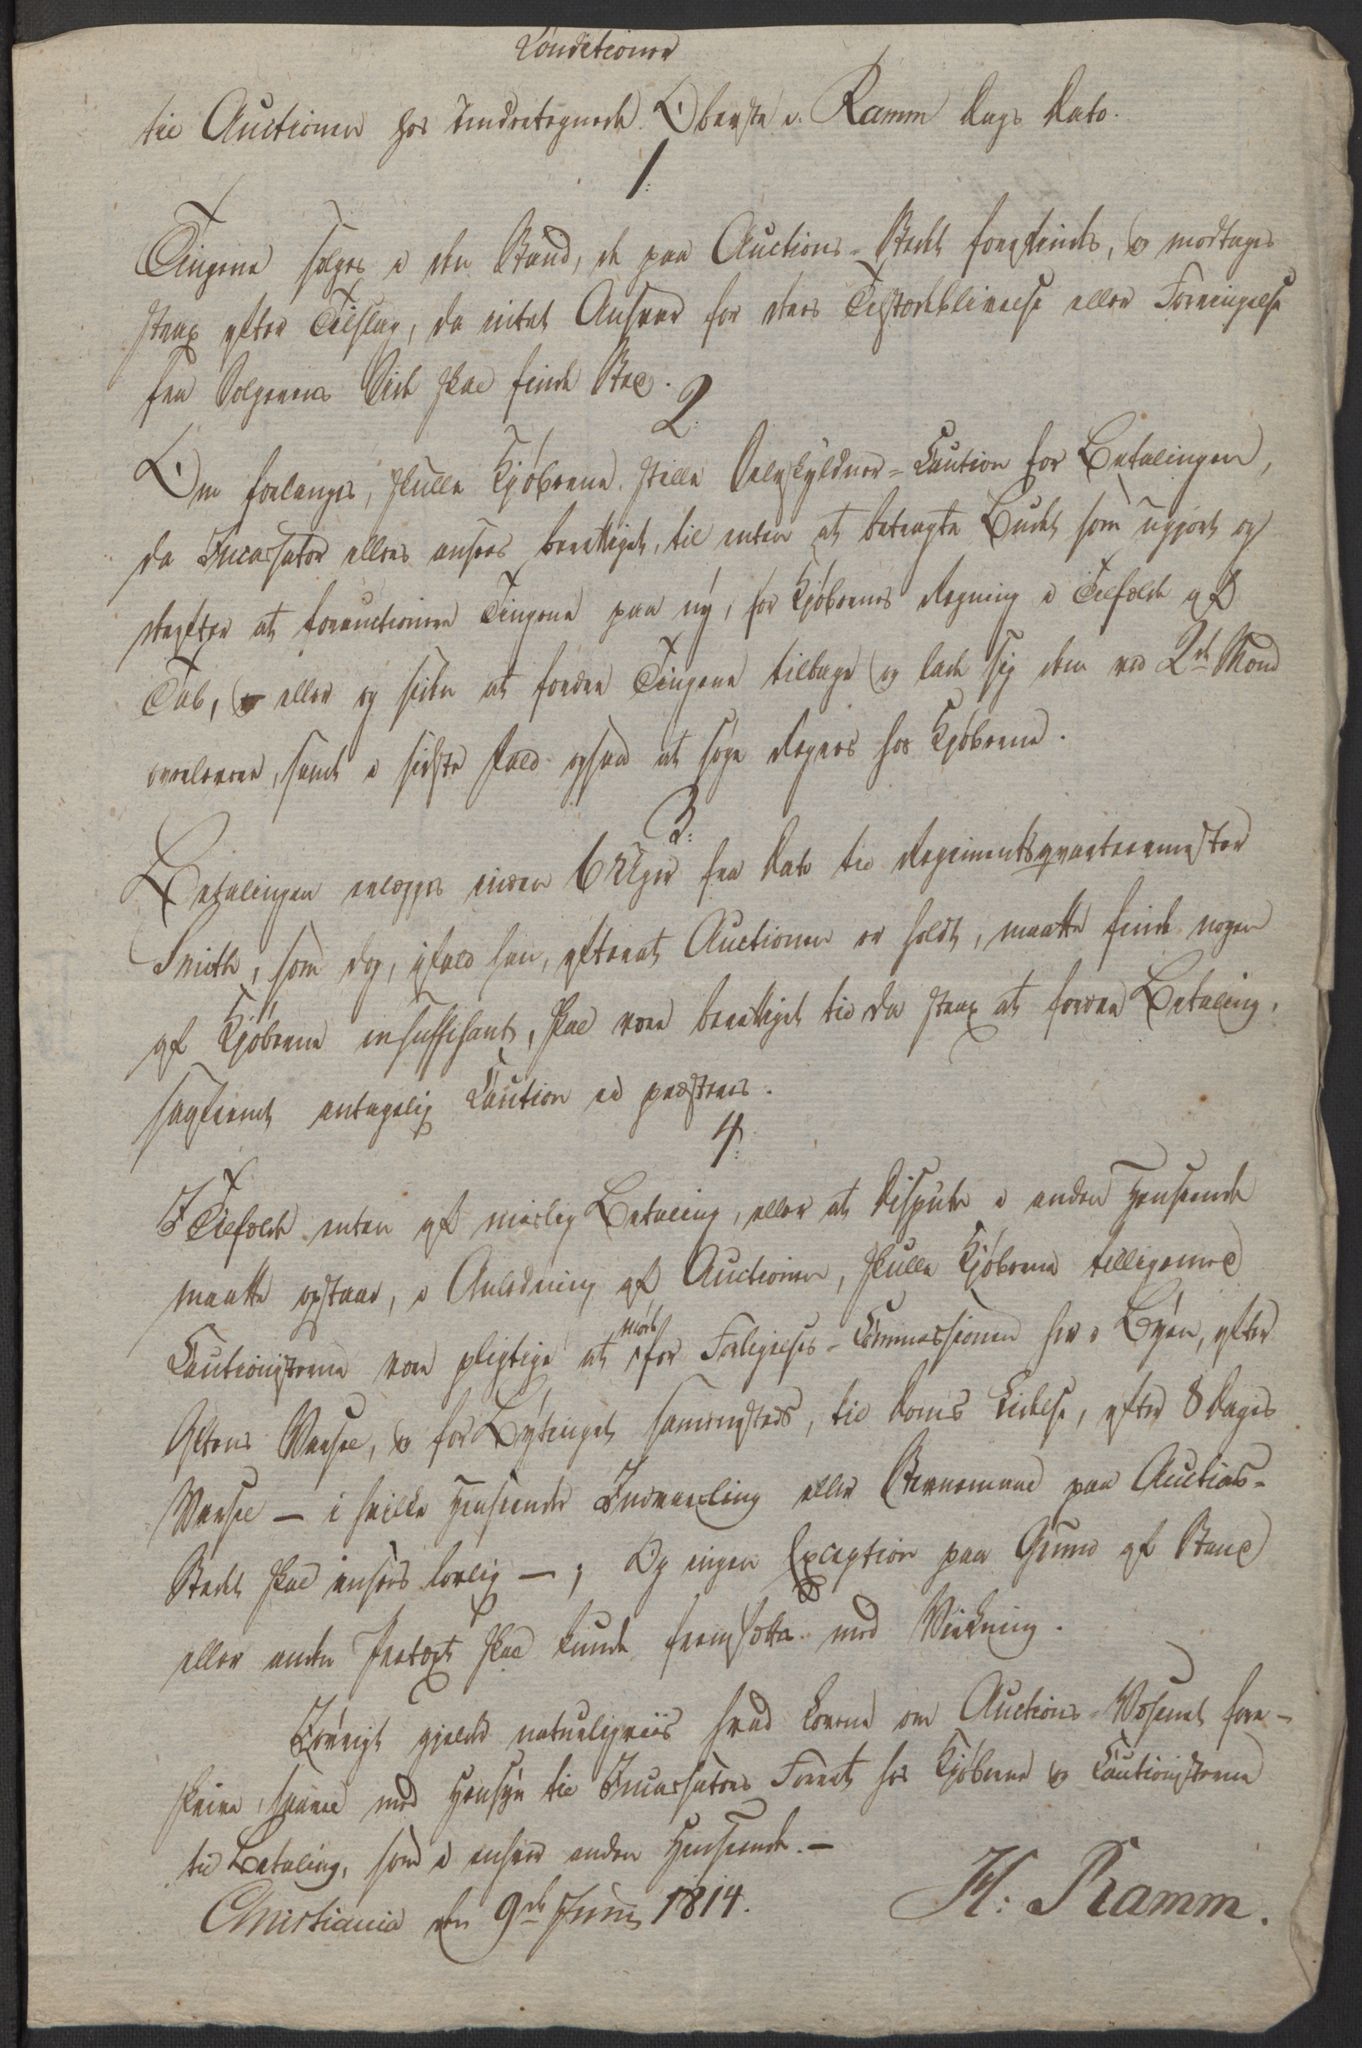 Conditioner
til Auctionen hos undertegnede Oberste v. Ramm Dags Dato.
1.
Tingene sælges i den Stand, de paa Auctions-Stedet forefindes, og modtages
strax efter Tilslag, da intet Ansvar for deres Tilstædeblivelse eller Forringelse
fra Sælgerens Side skal finde Sted.
2.
Om forlanges, skulle Kjøberne stille Selvskyldner-Caution for Betalingen,
da Incassator ellers ansees berettiget, til enten at betragte Budet som ugjort og
derefter at forauctionere Tingene paa ny, for Kjøbernes Regning i Tilfælde af
Tab, eller og siden at fordre Tingene tilbage og lade sig dem ved 2de Mænd
overlevere, samt i sidste Fald ogsaa at søge Regres hos Kjøberne.
3.
Betalingen erlægges inden 6 Uger fra Dato til Regimentsqvarteermester
Smith, som dog, ifald han, efterat Auctionen er holdt, maatte finde nogen
af Kjøberne insuffisant, skal være berettiget til da strax at fordre Betaling,
saafremt antagelig Caution ei præsteres.
4.
I Tilfælde enten af mislig Betaling, eller at Dispute i anden Henseende
maatte opstaae, i Anledning af Auctionen, skulle Kjøberne tilligemed
Cautionisterne være pligtige at møde for Forligelses-Commissionen her i Byen, efter
Aftens Varsel, og for Bytinget sammesteds, til Doms Lidelse, efter 8 Dages
Varsel — i hvilke Henseender Indvarsling eller Stevnemaal paa Auctions-
Stedet skal ansees lovlig —, Og ingen Exception paa Grund af Stand
eller anden Prætext skal kunde fremsættes med Virkning.
Iøvrigt gjelder naturligviis hvad Lovene om Auctions-Væsenet fore-
skrive, saavel med Hensyn til Incassators Forret hos Kjøberne og Cautionisterne
til Betaling, som i enhver anden Henseende. —
Christiania den 9de Junij 1814.
H: Ramm.